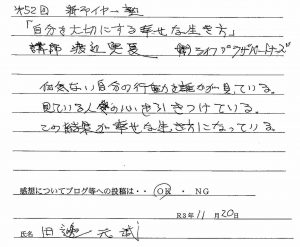 第52回 新ネイヤー塾
「自分を大切にする幸せな生き方」
講師 渡辺 ㈱ライフプラザパートナーズ
何気ない自分の行動を誰かが見ている。
見ている人の心を引きつけている。
この結果が幸せな生き方になっている。
感想についてブログ等への投稿は・・ OK ・ NG
R3年11月20日
氏名 田邊 元